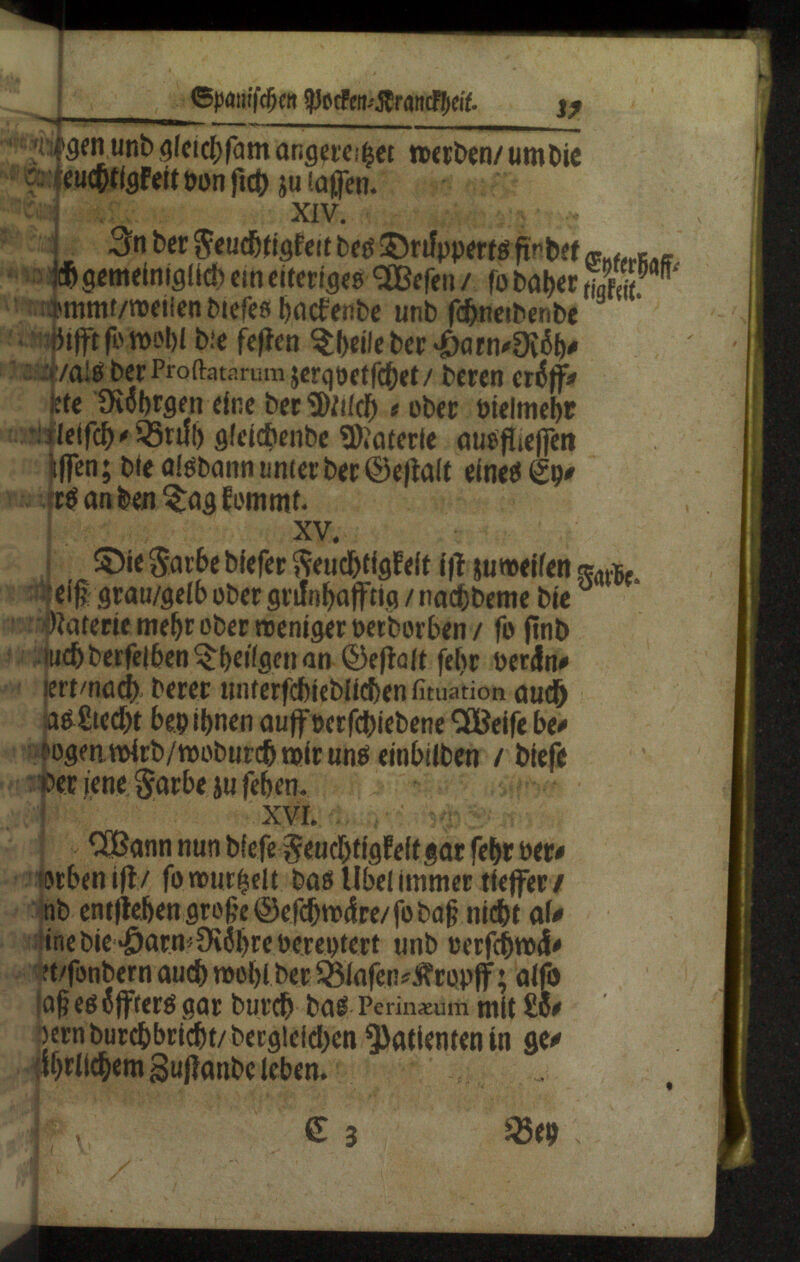 Spanischen Pocken-Kranckheit. 37
gen und gleichsam angereitzet werden/ um die
euchtigkeit von sich zu lassen.
XIV.
In der Feuchtigkeit des Drüppers findet
ch gemeiniglich ein eiteriges Wesen / so daher
Eyterhaff-
tigkeit.
mmt/weilen dieses hackende und schneidende
ifft so wohl die festen Theile der Harn-Röh-
/als der Prostatarum zerqvetschet/ deren eröff-
ete Röhrgen eine der Milch - oder vielmehr
leisch-Brüh gleichende Materie ausfliessen
assen; die alsdann unter der Gestalt eines Ey-
rs an den Tag kommt.
XV.
Die Farbe dieser Feuchtigkeit ist zuweilen
Farbe.
eiß grau/gelb oder grünhafftig / nachdeme die
Materie mehr oder weniger verdorben / so sind
uch derselben Theilgen an Gestalt sehr verän-
ert/nach derer unterschiedlichen situation auch
as Liecht bey ihnen auff verschiedene Weise be-
ogen wird/wodurch wir uns einbilden / diese
der jene Farbe zu sehen.
XVI.
Wann nun diese Feuchtigkeit gar sehr ver-
orben ist/ so wurtzelt das Übel immer tieffer /
nd entstehen große Geschwäre/ so daß nicht al-
ine die Harn-Röhre vereytert und verschwä-
et/sondern auch wohl der Blasen-Kropff; also
aß es öffters gar durch das Perinæum mit Lö-
ern durchbricht/ dergleichen Patienten in ge-
ährlichem Zustande leben.
E 3 Bey